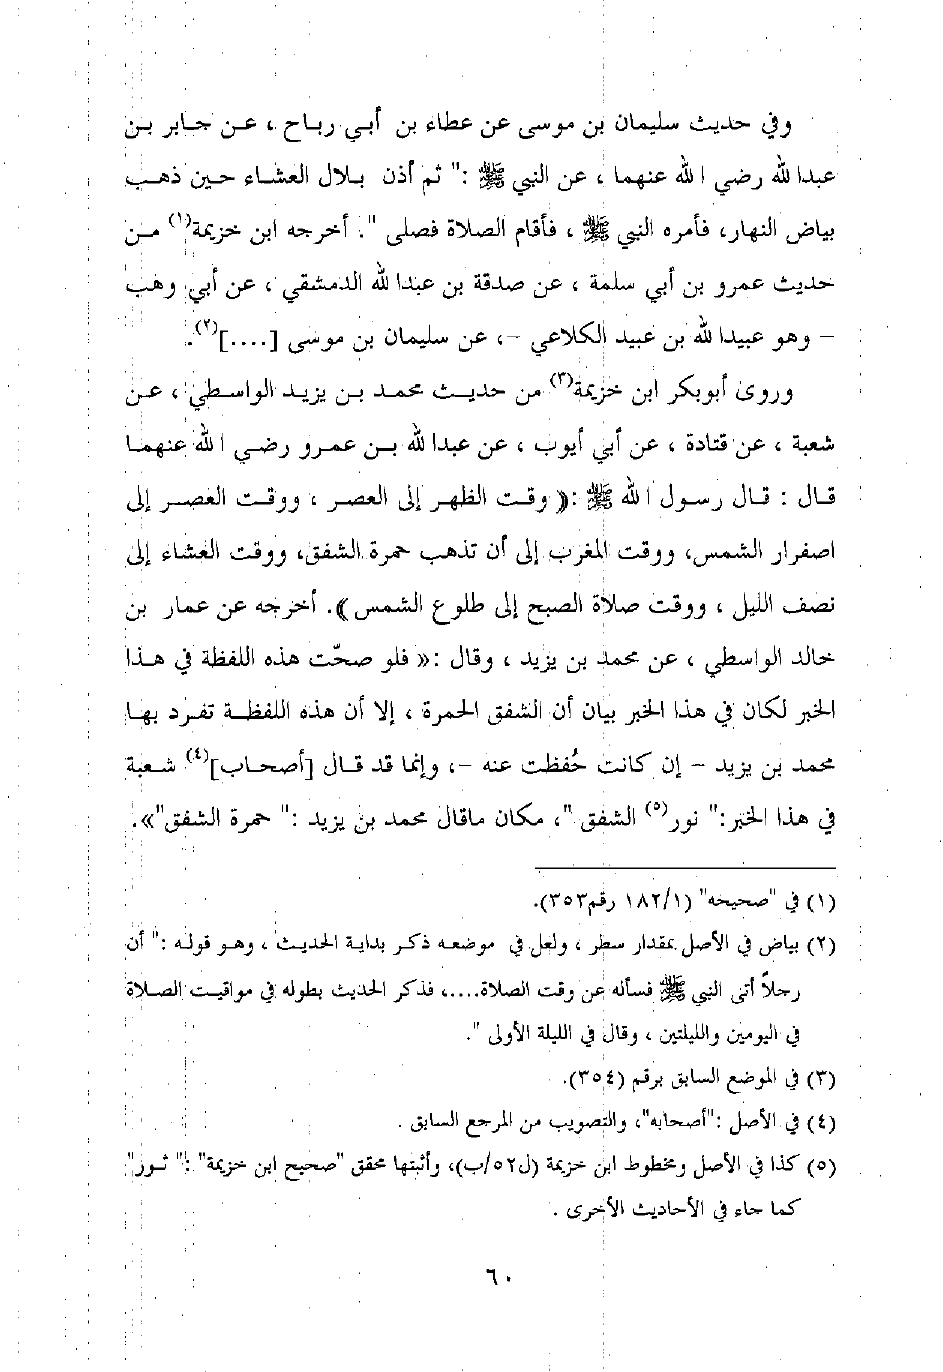 وفي حديث سليمان بن موسى عن عطاء بن أبي رباح ، عن جابر بن
عبدا لله رضي ا لله عنهما ، عن النبي ﷺ :" ثم أذن بلال العشاء حين ذهب
بياض النهار، فأمره النبي ﷺ ، فأقام الصلاة فصلى ". أخرجه ابن خزيمة(١) من
حديث عمرو بن أبي سلمة ، عن صدقة بن عبدا لله الدمشقي ، عن أبي وهب
– وهو عبيدا لله بن عبيد الكلاعي –، عن سليمان بن موسى [....](٢).
وروى أبوبكر ابن خزيمة(٣) من حديث محمد بن يزيد الواسطي ، عن
شعبة ، عن قتادة ، عن أبي أيوب ، عن عبدا لله بن عمرو رضي ا لله عنهما
قال : قال رسول ا لله ﷺ :(( وقت الظهر إلى العصر ، ووقت العصر إلى
اصفرار الشمس، ووقت المغرب إلى أن تذهب حمرة الشفق، ووقت العشاء إلى
نصف الليل ، ووقت صلاة الصبح إلى طلوع الشمس )). أخرجه عن عمار بن
خالد الواسطي ، عن محمد بن يزيد ، وقال :« فلو صحّت هذه اللفظة في هذا
الخبر لكان في هذا الخبر بيان أن الشفق الحمرة ، إلا أن هذه اللفظة تفرد بها
محمد بن يزيد – إن كانت حُفظت عنه –، وإنما قد قال [أصحاب](٤) شعبة
في هذا الخبر:" نور(٥) الشفق "، مكان ماقال محمد بن يزيد :" حمرة الشفق"».
(١) في "صحيحه" (١٨٢/١ رقم٣٥٣).
(٢) بياض في الأصل بمقدار سطر ، ولعل في موضعه ذكر بداية الحديث ، وهو قوله :" أن
رجلاً أتى النبي ﷺ فسأله عن وقت الصلاة....، فذكر الحديث بطوله في مواقيت الصلاة
في اليومين والليلتين ، وقال في الليلة الأولى ".
(٣) في الموضع السابق برقم (٣٥٤).
(٤) في الأصل :"أصحابه"، والتصويب من المرجع السابق .
(٥) كذا في الأصل ومخطوط ابن خزيمة (ل٥٢/ب)، وأثبتها محقق "صحيح ابن خزيمة" :" ثور"
كما جاء في الأحاديث الأخرى .
٦٠